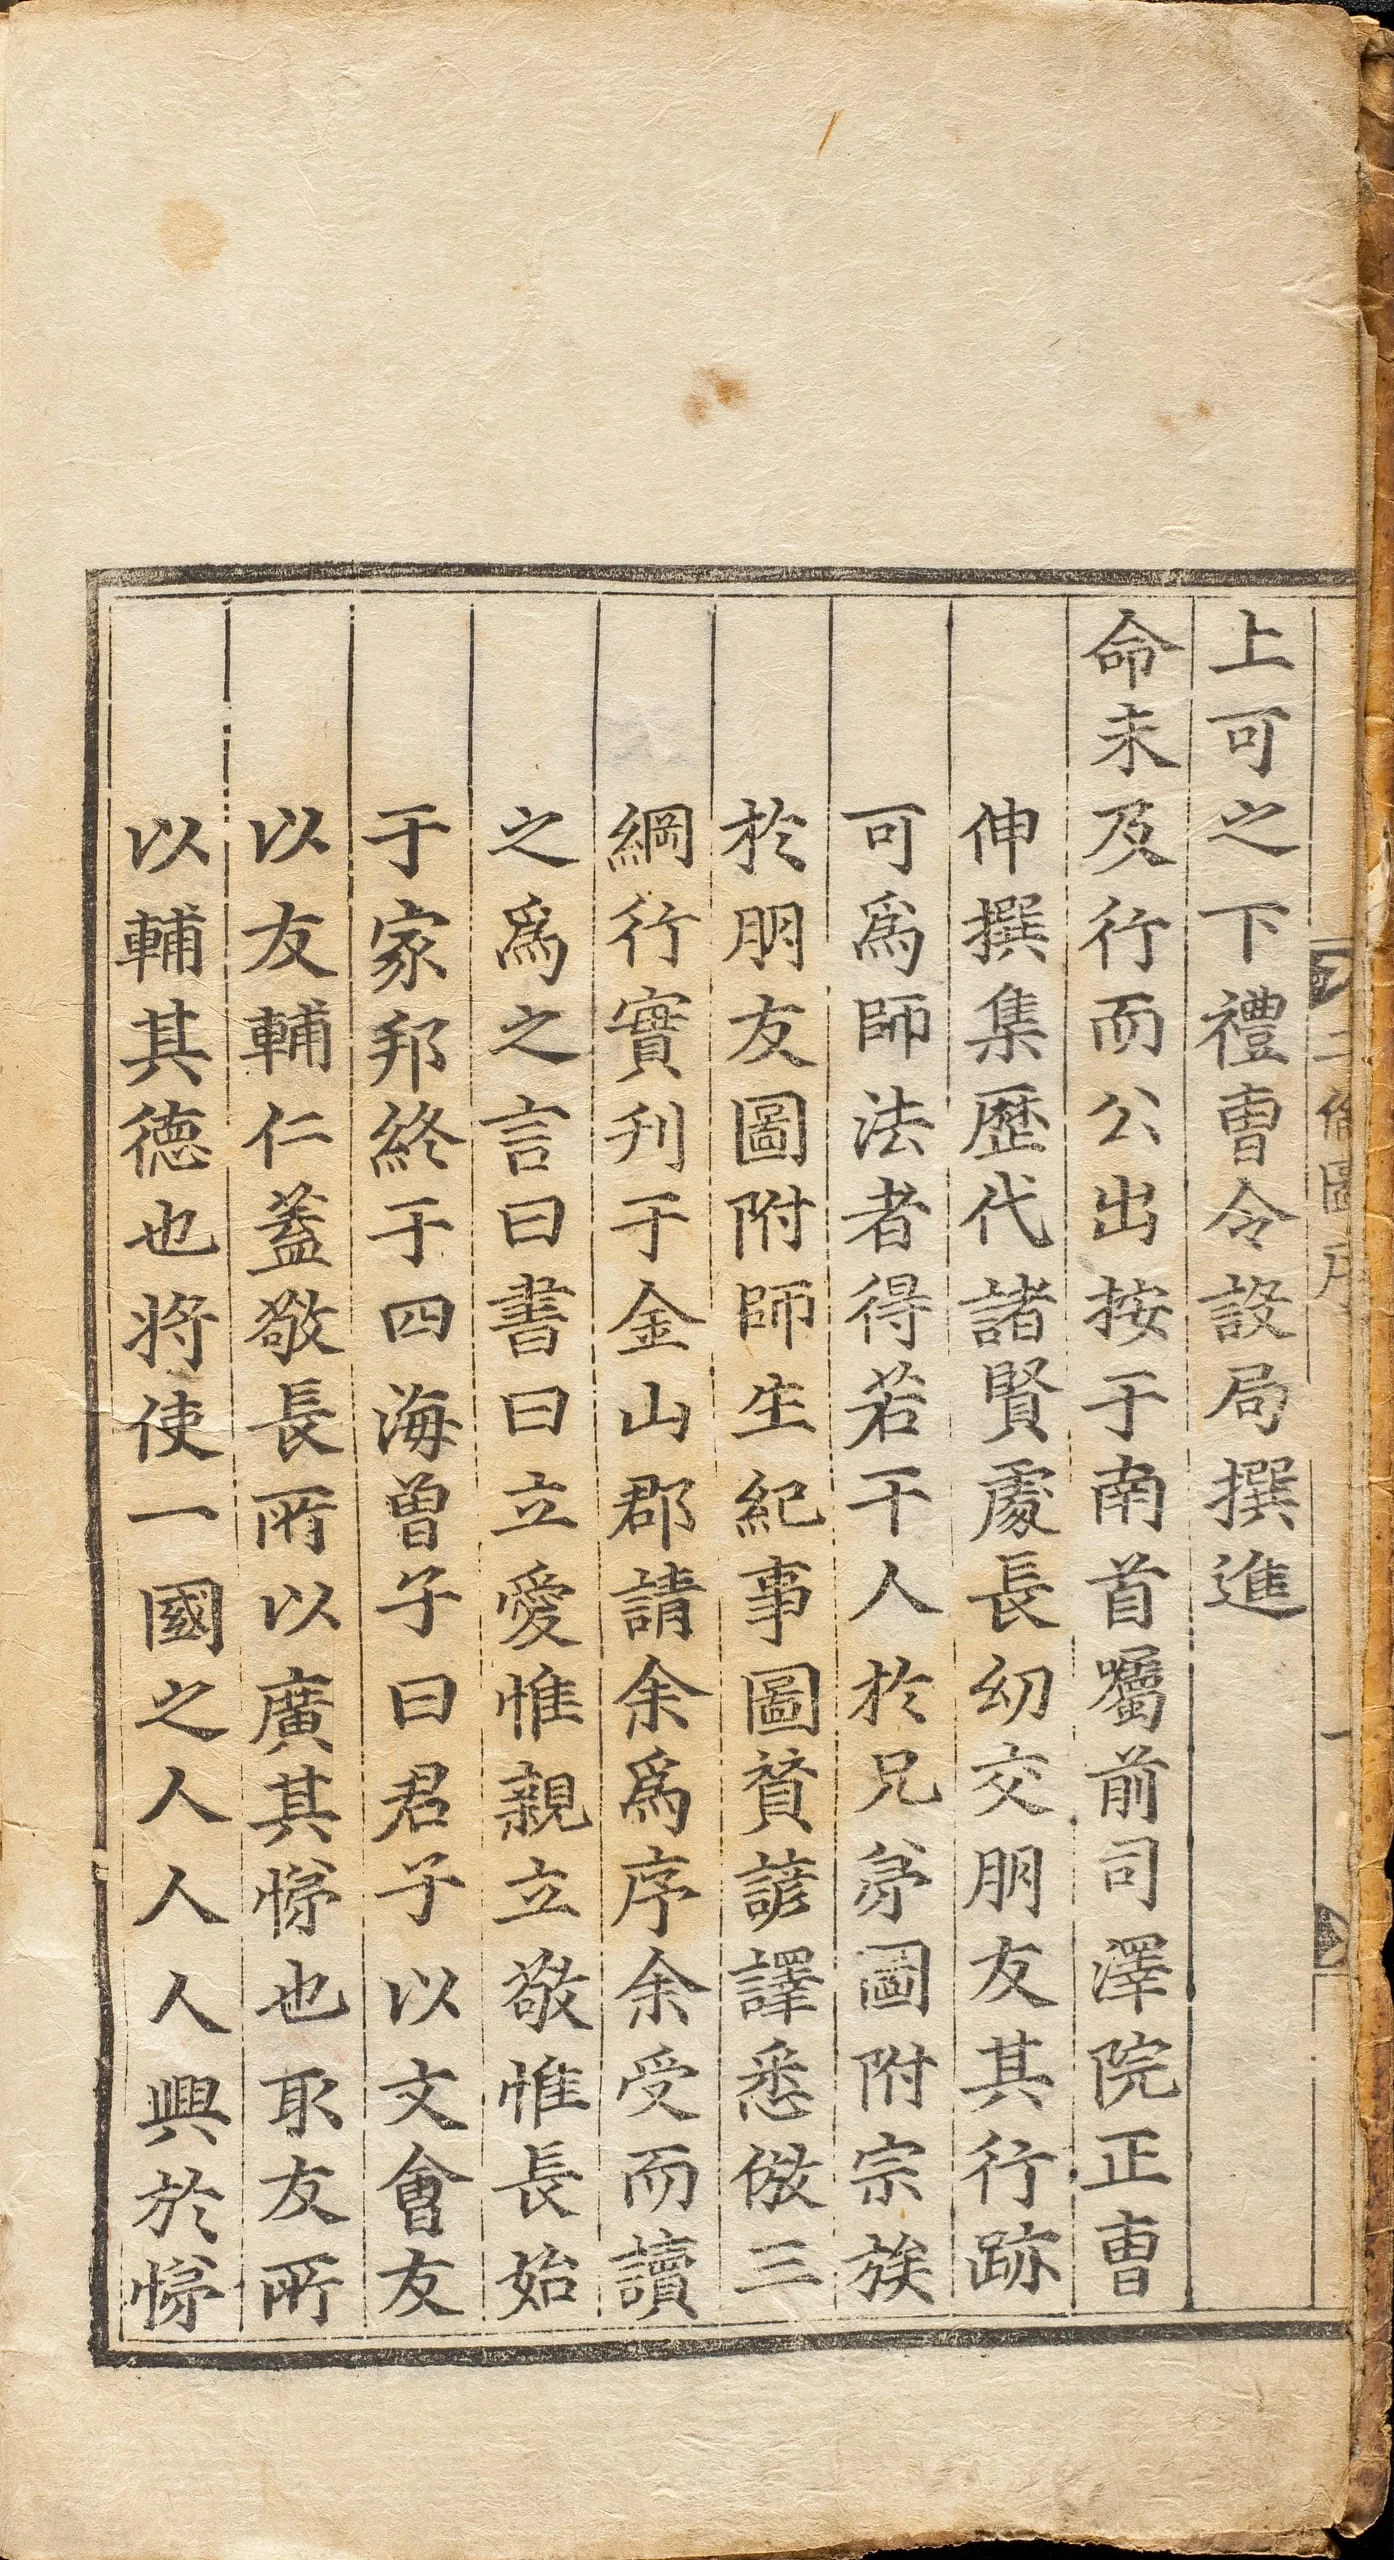 上可之下禮曺令設局撰進
命未及行而公出按于南首囑前司譯院正曺
伸撰集歷代諸賢處長幼交朋友其行跡
可爲師法者得若干人於兄弟圖附宗族
於朋友圖附師生紀事圖賛諺譯悉倣三
綱行實刋于金山郡請余爲序余受而讀
之爲之言曰書曰立愛惟親立敬惟長始
于家邦終于四海曾子曰君子以文會友
以友輔仁蓋敬長所以廣其悌也取友所
以輔其德也將使一國之人人人興於悌
二倫圖序
一